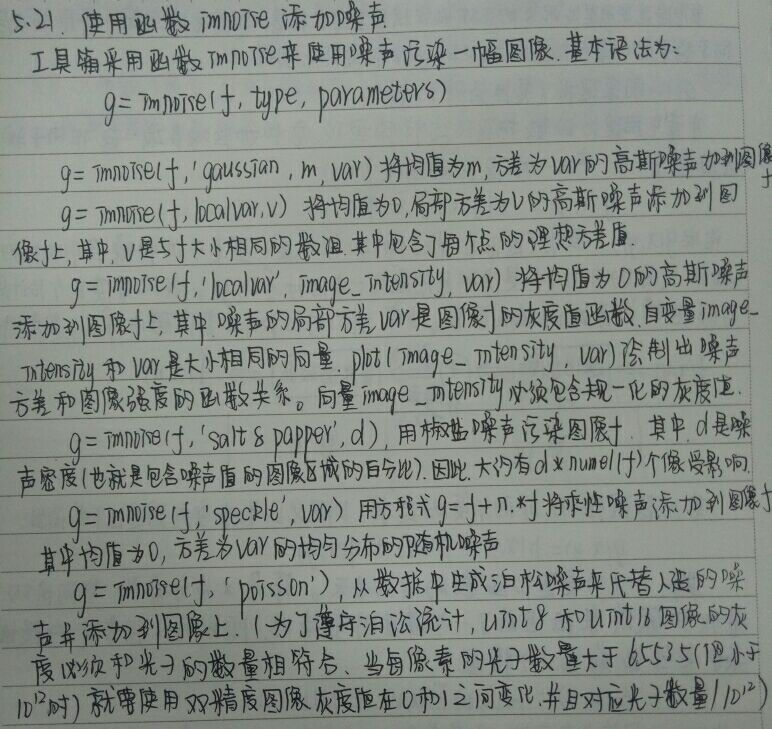 5.21. 使用函数 imnoise 添加噪声
工具箱采用函数imnoise来使用噪声污染一幅图像.基本语法为:
g= imnoise(f, type, parameters)
g= imnoise(f, 'gaussian, m, var) 将均值为m,方差为var的高斯噪声加到图像f
g= imnoise(f, localvar, v) 将均值为0,局部方差为V的高斯噪声添加到图
像f上,其中,V是与f大小相同的数组.其中包含了每个点的理想方差值.
g= imnoise(f, 'localvar', image_intensity, var) 将均值为0的高斯噪声
添加到图像f上,其中.噪声的局部方差var是图像f的灰度值函数.自变量image_
intensity 和 var是大小相同的向量. plot(image_intensity, var)绘制出噪声
方差和图像强度的函数关系。向量image_intensity必须包含规一化的灰度值.
g= imnoise(f, 'salt & papper', d), 用椒盐噪声污染图像f. 其中.d是噪
声密度(也就是包含噪声值的图像区域的百分比).因此.大约有d*numel(f)个像受影响.
g= imnoise(f, 'speckle', var) 用方程式g=f+n.*f将乘性噪声添加到图像f
其中均值为0,方差为var的均匀分布的随机噪声
g= imnoise(f, 'poisson'), 从数据中生成泊松噪声来代替人造的噪
声并添加到图像上.(为了遵守泊松统计, uint8 和uint16 图像的灰
度必须和光子的数量相符合、当每像素的光子数量大于65535(但小于
10¹²时)就要使用双精度图像.灰度值在0和1之间变化.并且对应光子数量/10¹²)